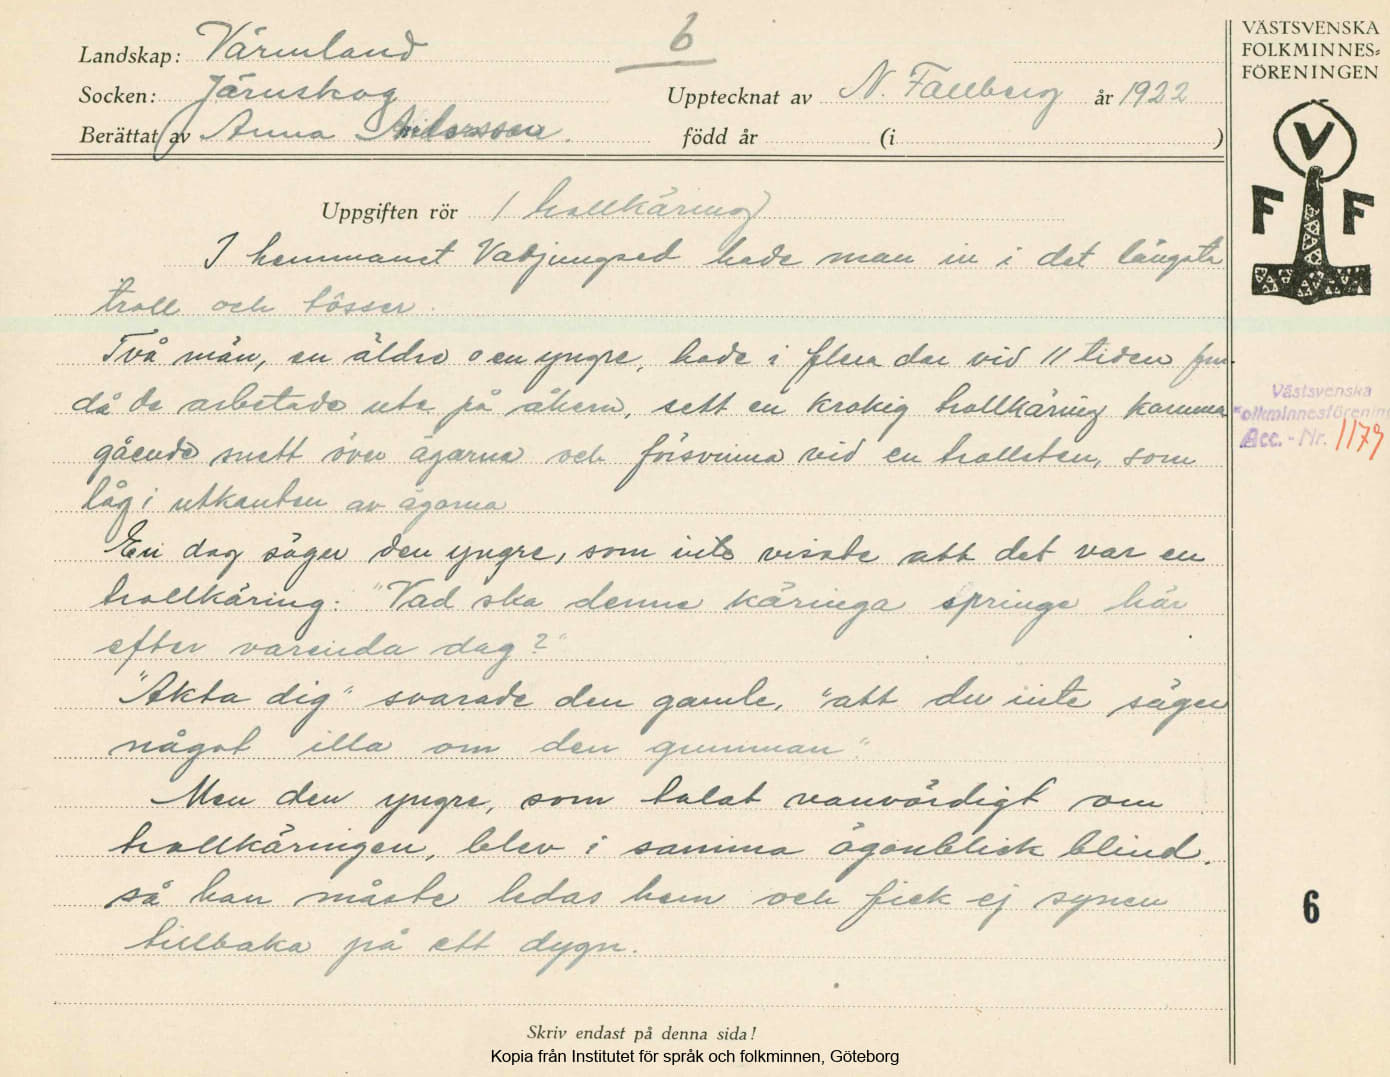 6
Landskap: Värmland
Socken: Järnskog
Upptecknat av N. Fallberg år 1922
Berättat av Anna Andersson.
född år (i )
Uppgiften rör (trollkäring)
I hemmanet Vadjungsed hade man in i det längsta
troll och tösser.
Två män, en äldre o en yngre, hade i flera dar vid 11 tiden fm.
då de arbetade ute på åkern, sett en krokig trollkäring komma
gående snett över ägarna och försvinna vid en trollsten, som
låg i utkanten av ägorna
En dag säger den yngre, som inte visste att det var en
trollkäring: "Vad ska denne käringa springe här
efter varenda dag?"
"Akta dig" svarade den gamle, "att du inte säger
något illa om den gumman".
Men den yngre, som talat vanvördigt om
trollkäringen, blev i samma ögonblick blind.
så han måste ledas hem och fick ej synen
tillbaka på ett dygn.
Skriv endast på denna sida!
Kopia från Institutet för språk och folkminnen, Göteborg
VÄSTSVENSKA
FOLKMINNES-
FÖRENINGEN
V
F F
Västsvenska
Folkminnesförenin
Acc. - Nr. 1179
6